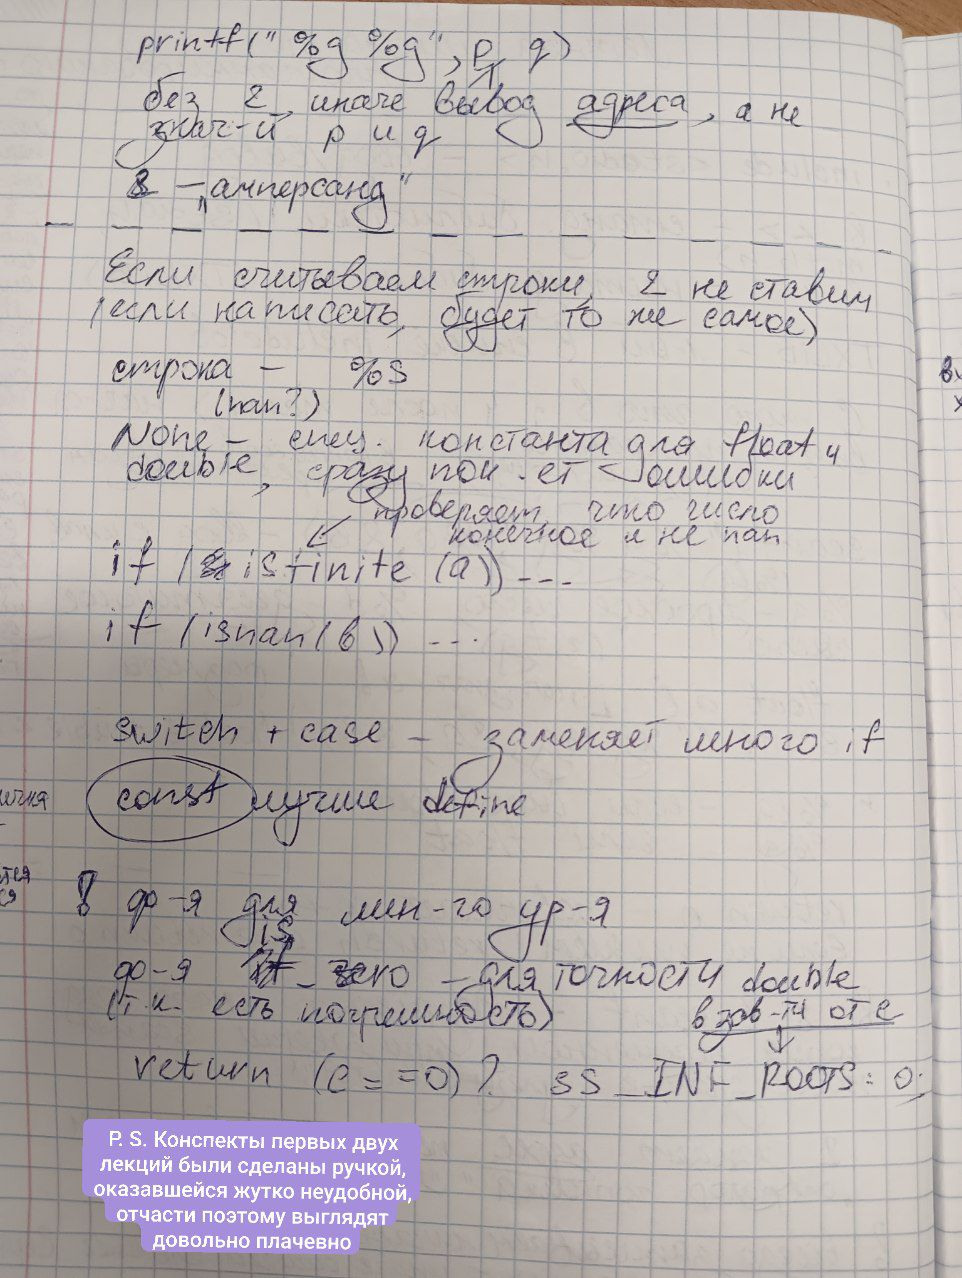 printf("%g %g", p, q)
без &, иначе вывод адреса, а не
знач-й p и q
& – „амперсанд"
Если считываем строки, & не ставим
(если написать, будет то же самое)
строка – %s
(nan?)
None – спец. константа для float и
double, сразу пок-ет ошибки
проверяет, что число
конечное и не nan
if (isfinite (a)) ---
if (isnan(b)) ---
switch + case – заменяет много if
const лучше define
! ф-я для лин-го ур-я
ф-я is_zero – для точности double
(т.к. есть погрешность) в зав-ти от c
return (c==0)? SS_INF_ROOTS: 0;
P. S. Конспекты первых двух
лекций были сделаны ручкой,
оказавшейся жутко неудобной,
отчасти поэтому выглядят
довольно плачевно